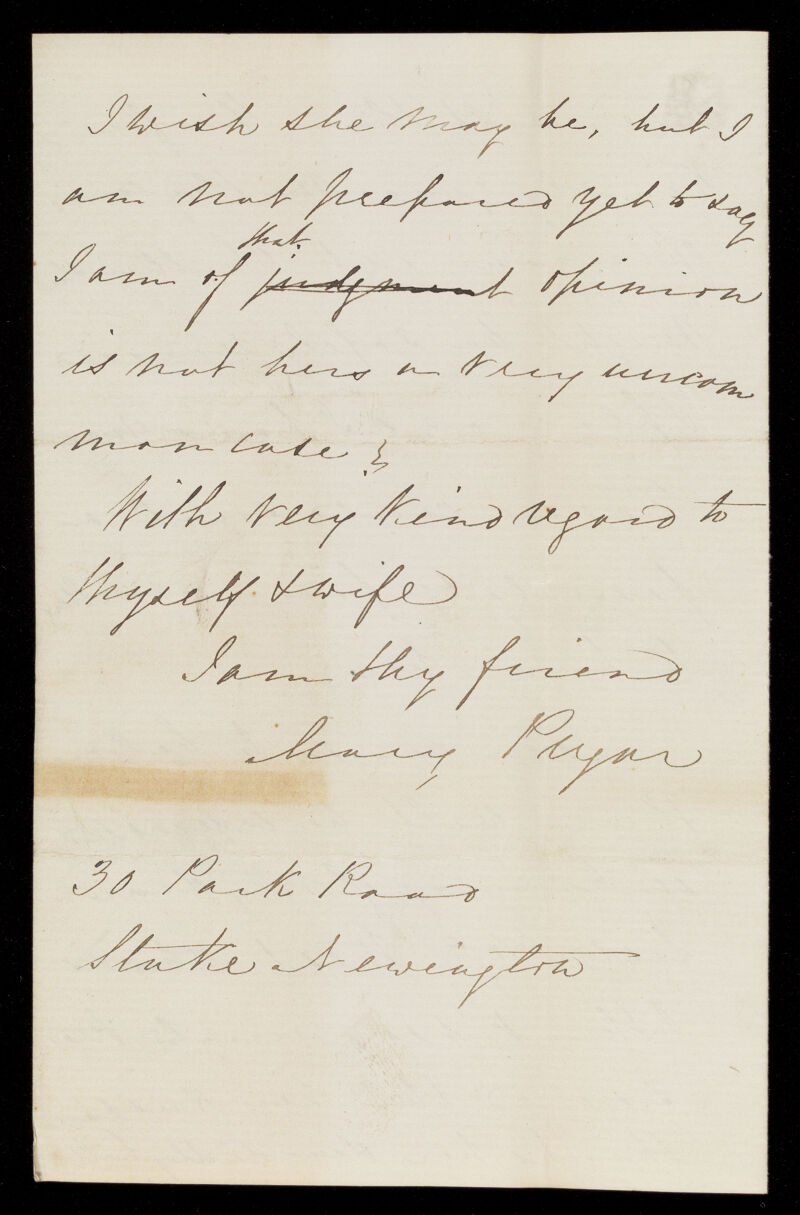 I wish she may be, but I
am not prepared yet to say
that
I am of judgment opinion
is not hers a very uncom
mon case?
With very kind regard to
thyself & wife
I am thy friend
Mary Pryor
30 Park Road
Stoke Newington